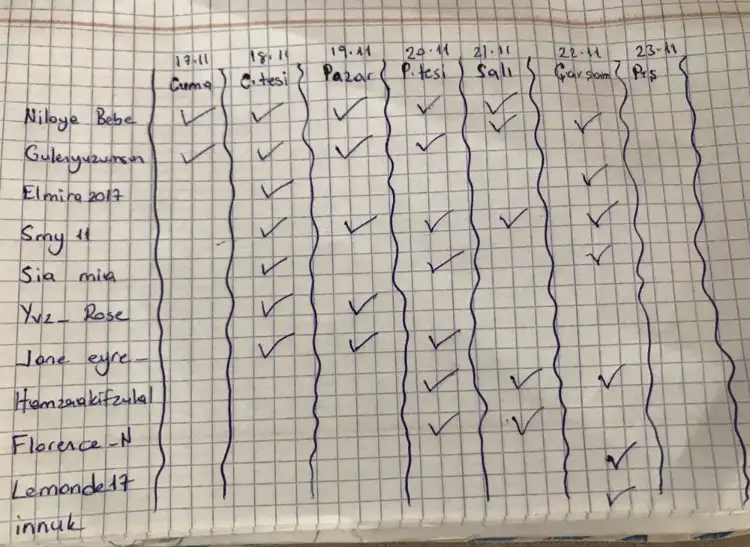 17.11 18.11 19.11 20.11 21.11 22.11 23.11
Cuma C.tesi Pazar P.tesi Salı Çarşam Prş
Niloya Bebe ✓ ✓ ✓ ✓ ✓
Guleryuzumsun ✓ ✓ ✓ ✓ ✓ ✓
Elmira 2017 ✓ ✓
Smy 11 ✓ ✓ ✓ ✓ ✓
Sia mia ✓ ✓ ✓
Yvz_ Rose ✓ ✓
Jane eyre_ ✓ ✓ ✓
Hamzaakifzulal ✓ ✓ ✓
Florence_N ✓ ✓
Lemonde17 ✓
innuk ✓